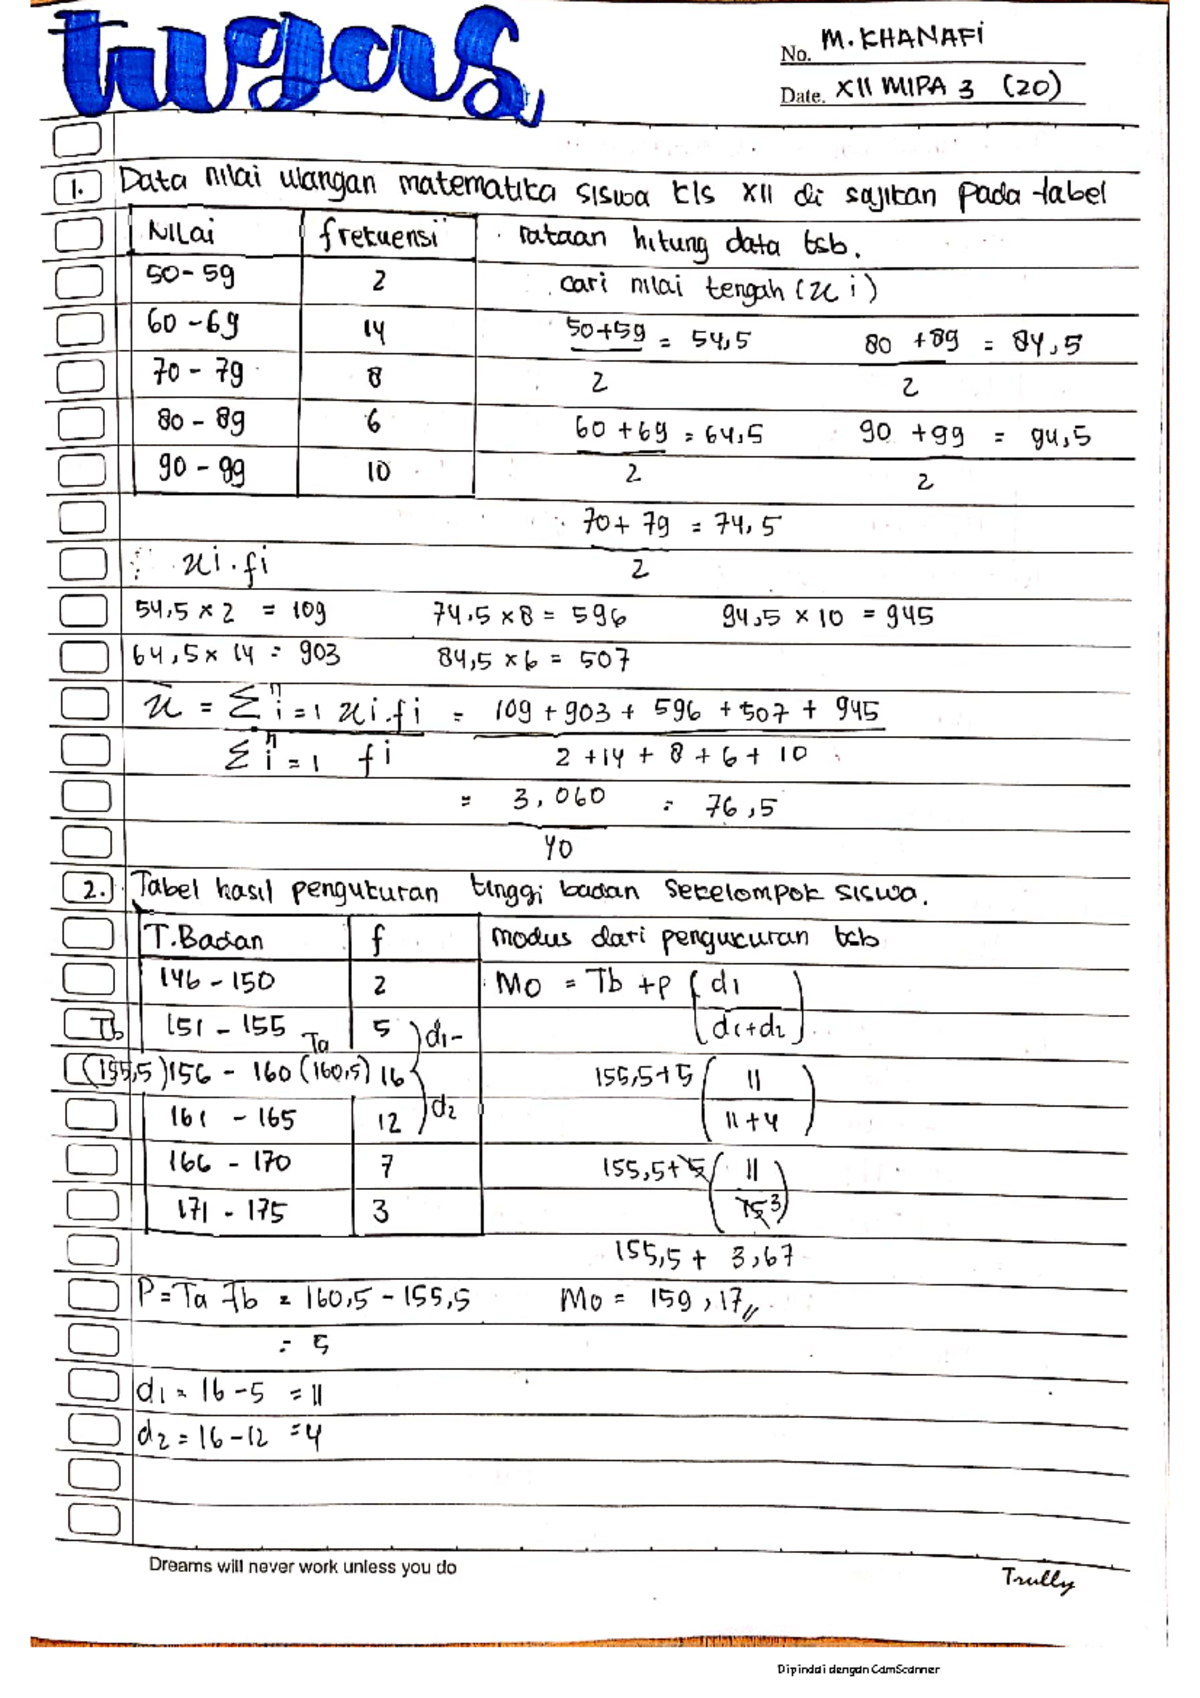 tugas
No. M. KHANAFI
Date. XII MIPA 3 (20)
1. Data nilai ulangan matematika siswa kls XII di sajikan pada tabel
Nilai frekuensi rataan hitung data tsb.
50-59 2 cari nilai tengah (xi)
60-69 14 50+59/2 = 54,5 80+89/2 = 84,5
70-79 8
80-89 6 60+69/2 = 64,5 90+99/2 = 94,5
90-99 10
70+79/2 = 74,5
xi.fi
54,5 x 2 = 109 74,5 x 8 = 596 94,5 x 10 = 945
64,5 x 14 = 903 84,5 x 6 = 507
x̄ = Σ n i=1 xi.fi / Σ n i=1 fi = 109+903+596+507+945 / 2+14+8+6+10
= 3,060/40 = 76,5
2. Tabel hasil pengukuran tinggi badan sekelompok siswa.
T.Badan f modus dari pengukuran tsb
146-150 2 Mo = Tb+p (d1/d1+d2)
Tb 151-155 Ta 5 d1-
(155,5) 156-160 (160,5) 16 155,5+5 (11/11+4)
161-165 12 d2
166-170 7 155,5+5 (11/15 3)
171-175 3
155,5 + 3,67
P=Ta-Tb = 160,5-155,5 Mo = 159,17//
= 5
d1 = 16-5 = 11
d2 = 16-12 = 4
Dreams will never work unless you do
Trully
Dipindai dengan CamScanner